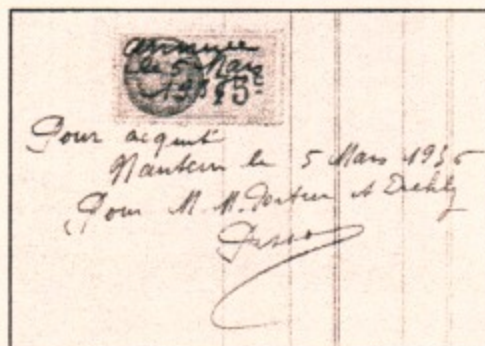 annulée
le 5 Mars
1936
Pour acquit
Nanterre le 5 Mars 1936
Pour M. M. et